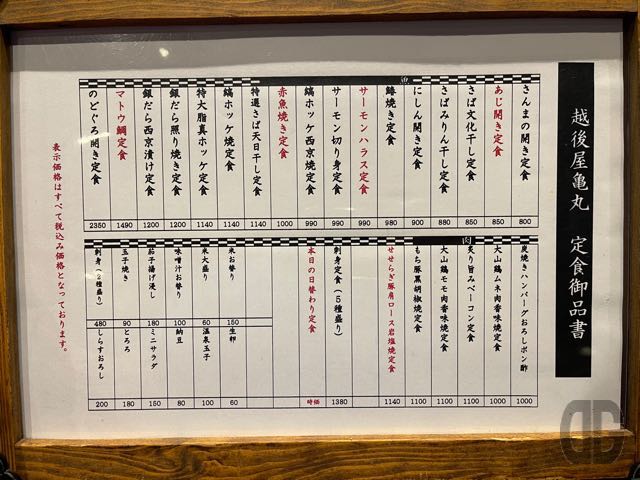 越後屋亀丸 定食御品書
魚
さんまの開き定食 800
あじ開き定食 850
さば文化干し定食 850
さばみりん干し定食 880
にしん開き定食 900
鰆焼き定食 980
サーモンハラス定食 990
サーモン切り身定食 990
縞ホッケ西京焼定食 990
赤魚焼き定食 1000
特選さば天日干し定食 1140
縞ホッケ焼定食 1140
特大脂真ホッケ定食 1140
銀だら照り焼き定食 1200
銀だら西京漬け定食 1200
マトウ鯛定食 1490
のどぐろ開き定食 2350
肉
炭焼きハンバーグおろしポン酢 1000
大山鶏ムネ肉香味焼定食 1000
炙り旨みベーコン定食 1100
大山鶏モモ肉香味焼定食 1100
もち豚黒胡椒焼定食 1100
せせらぎ豚肩ロース岩塩焼定食 1140
刺身定食(5種盛り) 1380
本日の日替わり定食 時価
米お替り 150
米大盛り 60
味噌汁お替り 100
茄子揚げ浸し 180
玉子焼き 90
刺身(2種盛り) 480
生卵 60
温泉玉子 100
納豆 80
ミニサラダ 150
とろろ 180
しらすおろし 200
表示価格はすべて税込み価格となっております。